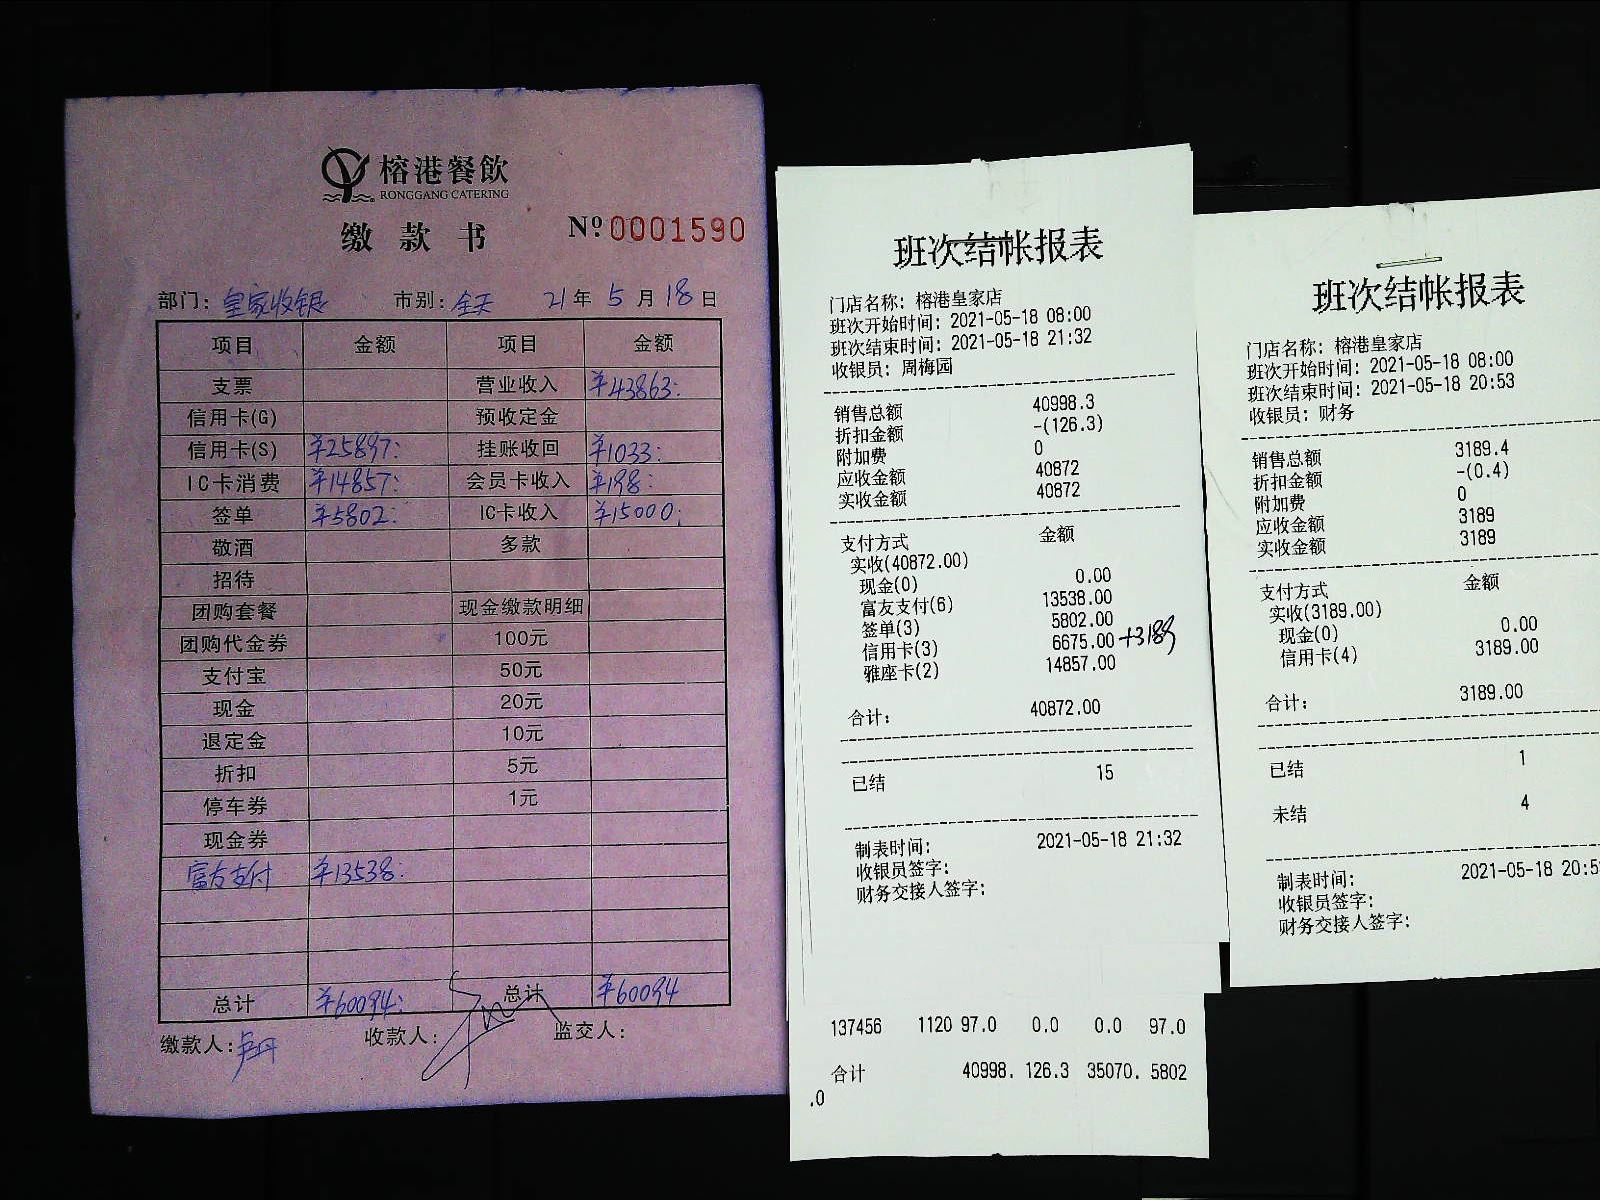 榕港餐飲
RONGGANG CATERING
缴款书 Nº 0001590
部门: 皇家收银 市别: 全天 21年 5月 18日
项目 金额 项目 金额
支票 营业收入 ¥43863:
信用卡(G) 预收定金
信用卡(S) ¥25897: 挂账收回 ¥1033:
IC卡消费 ¥14857: 会员卡收入 ¥198:
签单 ¥5802: IC卡收入 ¥15000:
敬酒 多款
招待
团购套餐 现金缴款明细
团购代金券 100元
支付宝 50元
现金 20元
退定金 10元
折扣 5元
停车券 1元
现金券
富友支付 ¥13538:
总计 ¥60094: 总计 ¥60094
缴款人: 收款人: 监交人:
班次结帐报表
门店名称: 榕港皇家店
班次开始时间: 2021-05-18 08:00
班次结束时间: 2021-05-18 21:32
收银员: 周梅园
销售总额 40998.3
折扣金额 -(126.3)
附加费 0
应收金额 40872
实收金额 40872
支付方式 金额
实收(40872.00)
现金(0) 0.00
富友支付(6) 13538.00
签单(3) 5802.00
信用卡(3) 6675.00 +3189
雅座卡(2) 14857.00
合计: 40872.00
已结 15
制表时间: 2021-05-18 21:32
收银员签字:
财务交接人签字:
137456 1120 97.0 0.0 0.0 97.0
合计 40998. 126.3 35070. 5802
.0
班次结帐报表
门店名称: 榕港皇家店
班次开始时间: 2021-05-18 08:00
班次结束时间: 2021-05-18 20:53
收银员: 财务
销售总额 3189.4
折扣金额 -(0.4)
附加费 0
应收金额 3189
实收金额 3189
支付方式 金额
实收(3189.00)
现金(0) 0.00
信用卡(4) 3189.00
合计: 3189.00
已结 1
未结 4
制表时间: 2021-05-18 20:5
收银员签字:
财务交接人签字: